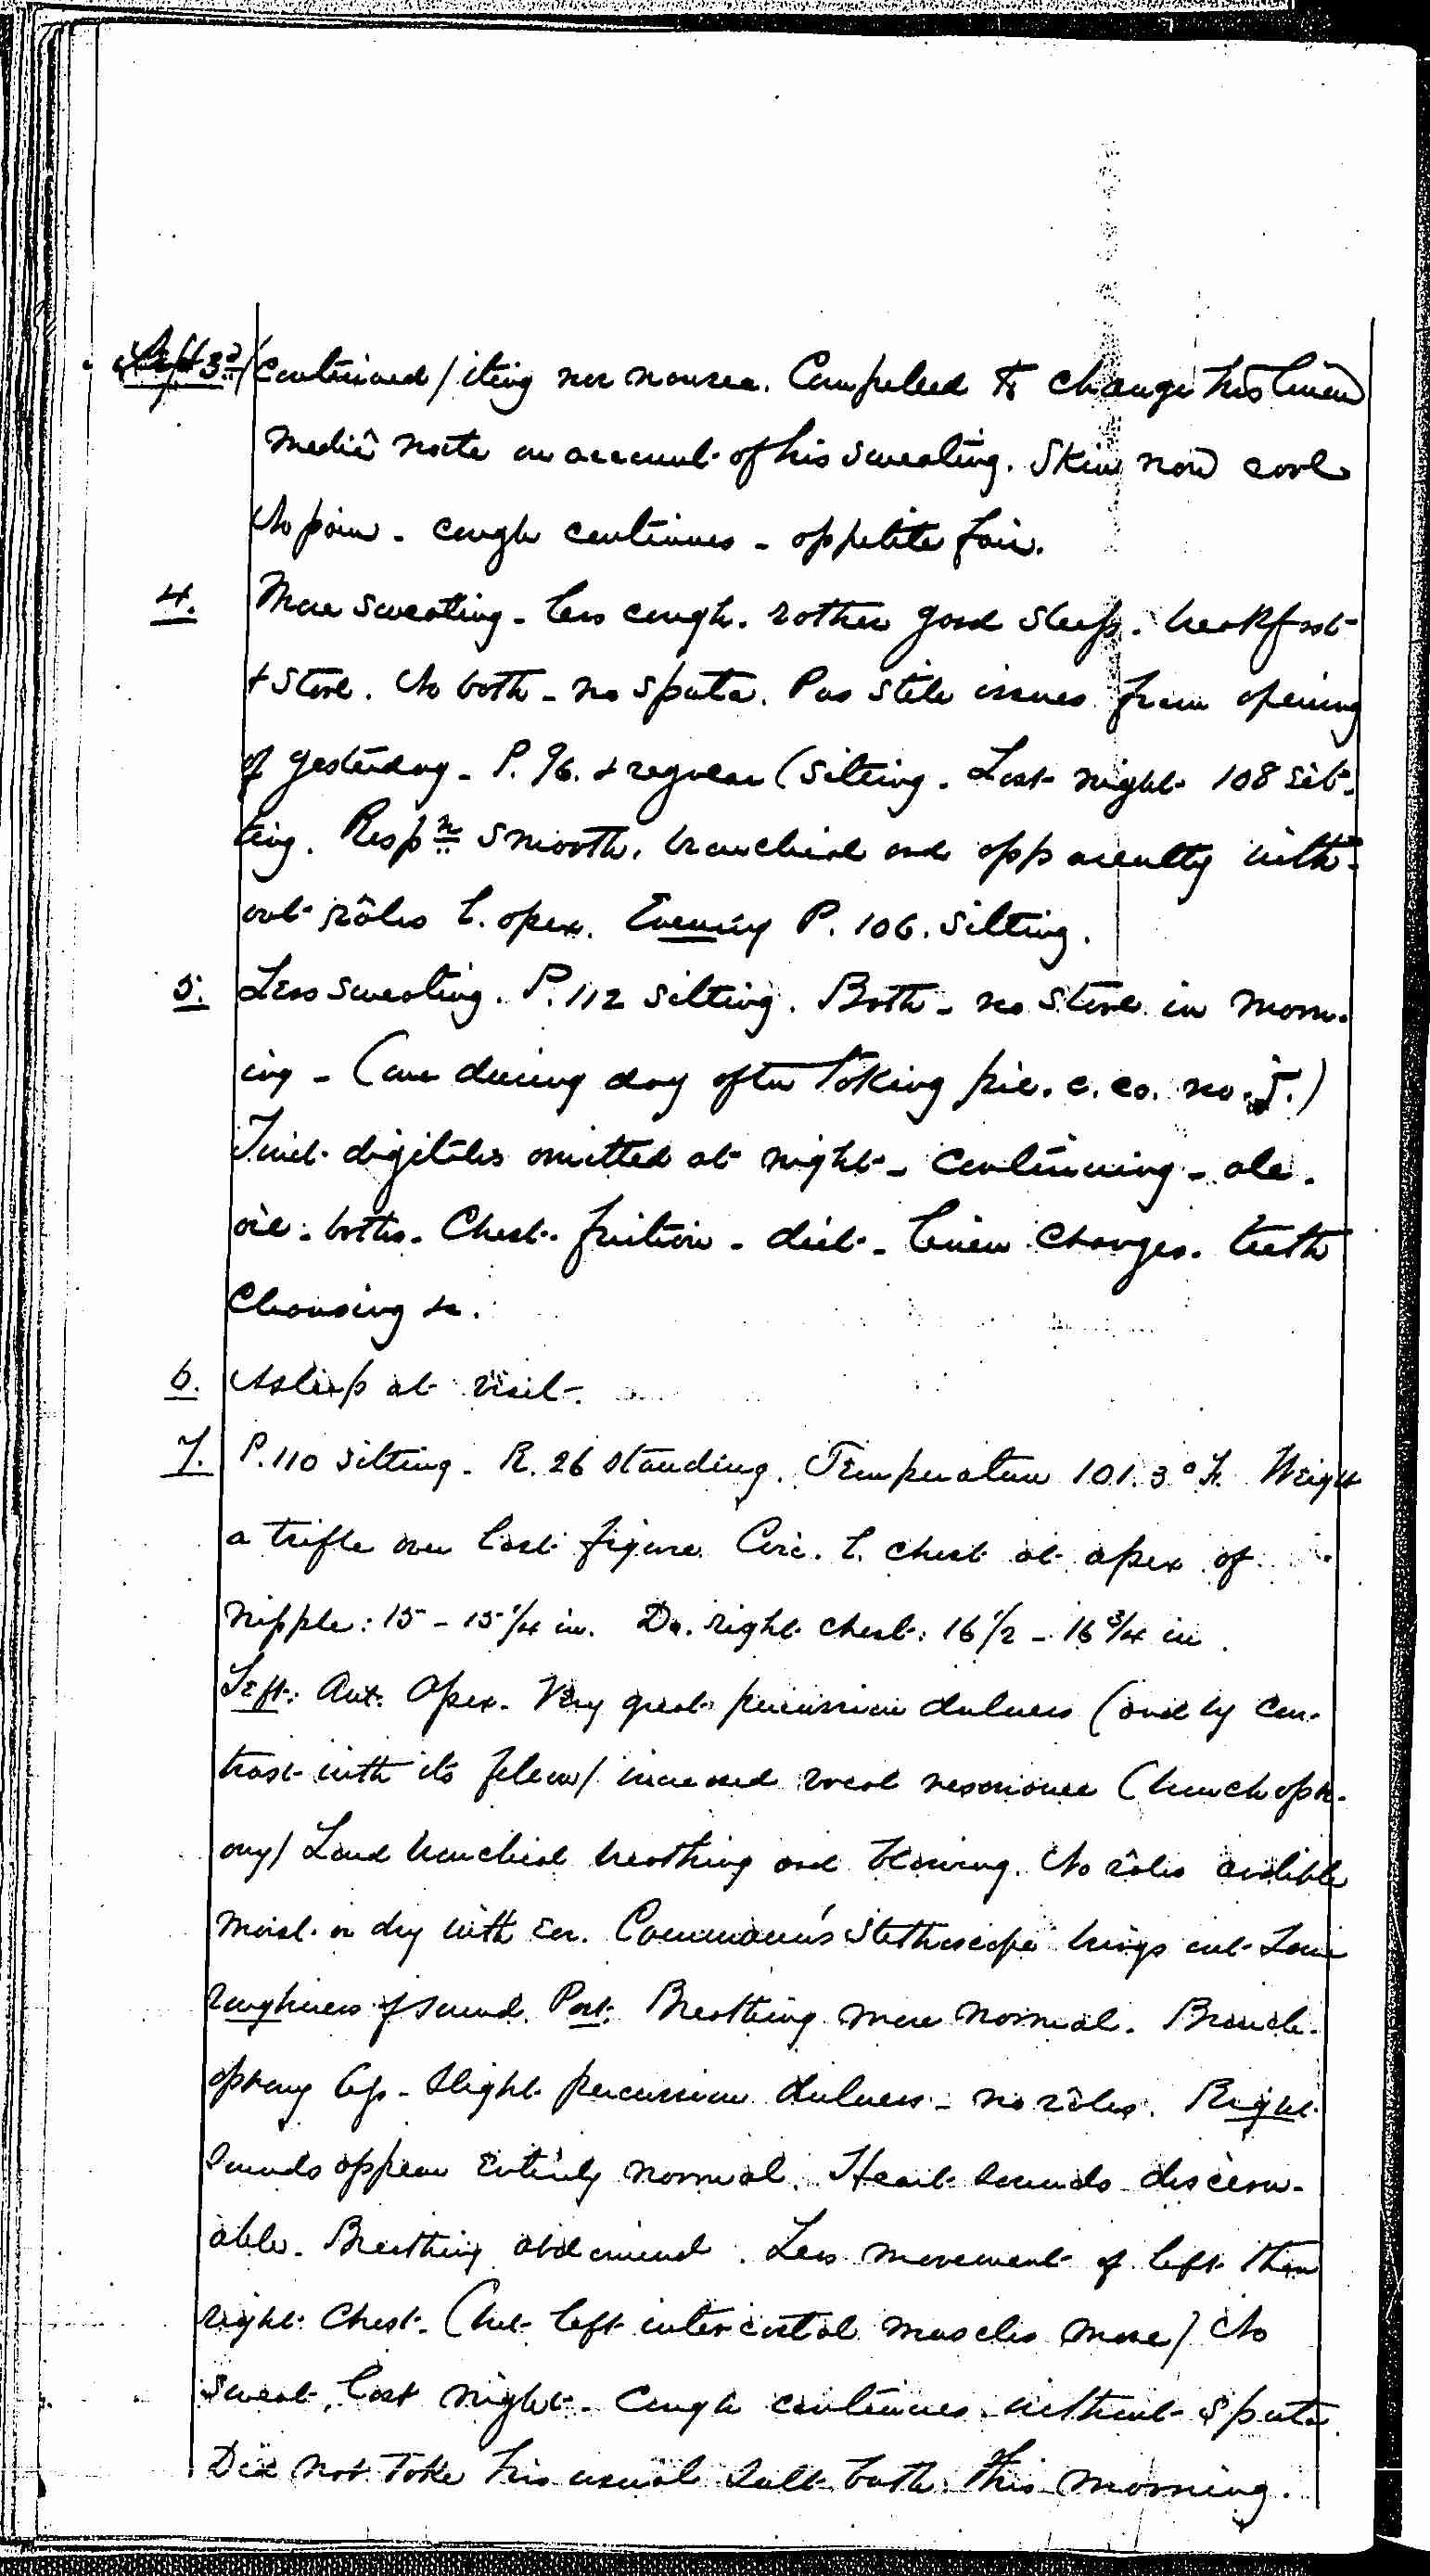 Sept 3d (Continued) iting nor nausea. Compelled to change his linen
mediâ nocte on account of his sweating. Skin now cool
No pain - cough continues - appetite fair.
4. More sweating - less cough. rather good sleep. breakfast
+ stool. No bath - no sputa. Pus still issues from opening
of yesterday - P. 96. & regular (sitting. Last night 108 sit-
ting. Respn smooth, bronchial and apparently with-
out râles l. apex. Evening P. 106. sitting.
5. Less sweating. P. 112 sitting. Bath - no stool in morn-
ing - (one during day after taking pil. c. co. no. j.)
Tinct. digitalis omitted at night - continuing - ale.
oil - baths - Chest friction - diet - linen changes. teeth
cleansing &c.
6. Asleep at visit.
7. P. 110 sitting. R. 26 standing. Temperature 101.3° F. Weight
a trifle over last figure. Circ. l. chest at apex of
nipple: 15 - 15 1/4 in. Do. right chest: 16 1/2 - 16 3/4 in.
Left: Ant. Apex. Very great percussion dulness (and by con-
trast with its fellow) increased vocal resonance (bronchoph-
ony) Loud bronchial breathing and blowing. No râles audible
moist or dry with ear. Cammann's Stethoscope brings out some
roughness of sound. Post. Breathing more normal. Bronch-
ophony less - slight percussion dulness - no râles. Right
sounds appear entirely normal. Heart sounds discern-
able. Breathing abdominal. Less movement of left than
right chest. (but left intercostal muscles more) No
sweat last night - Cough continues without sputa.
Did not take his usual salt bath this morning.